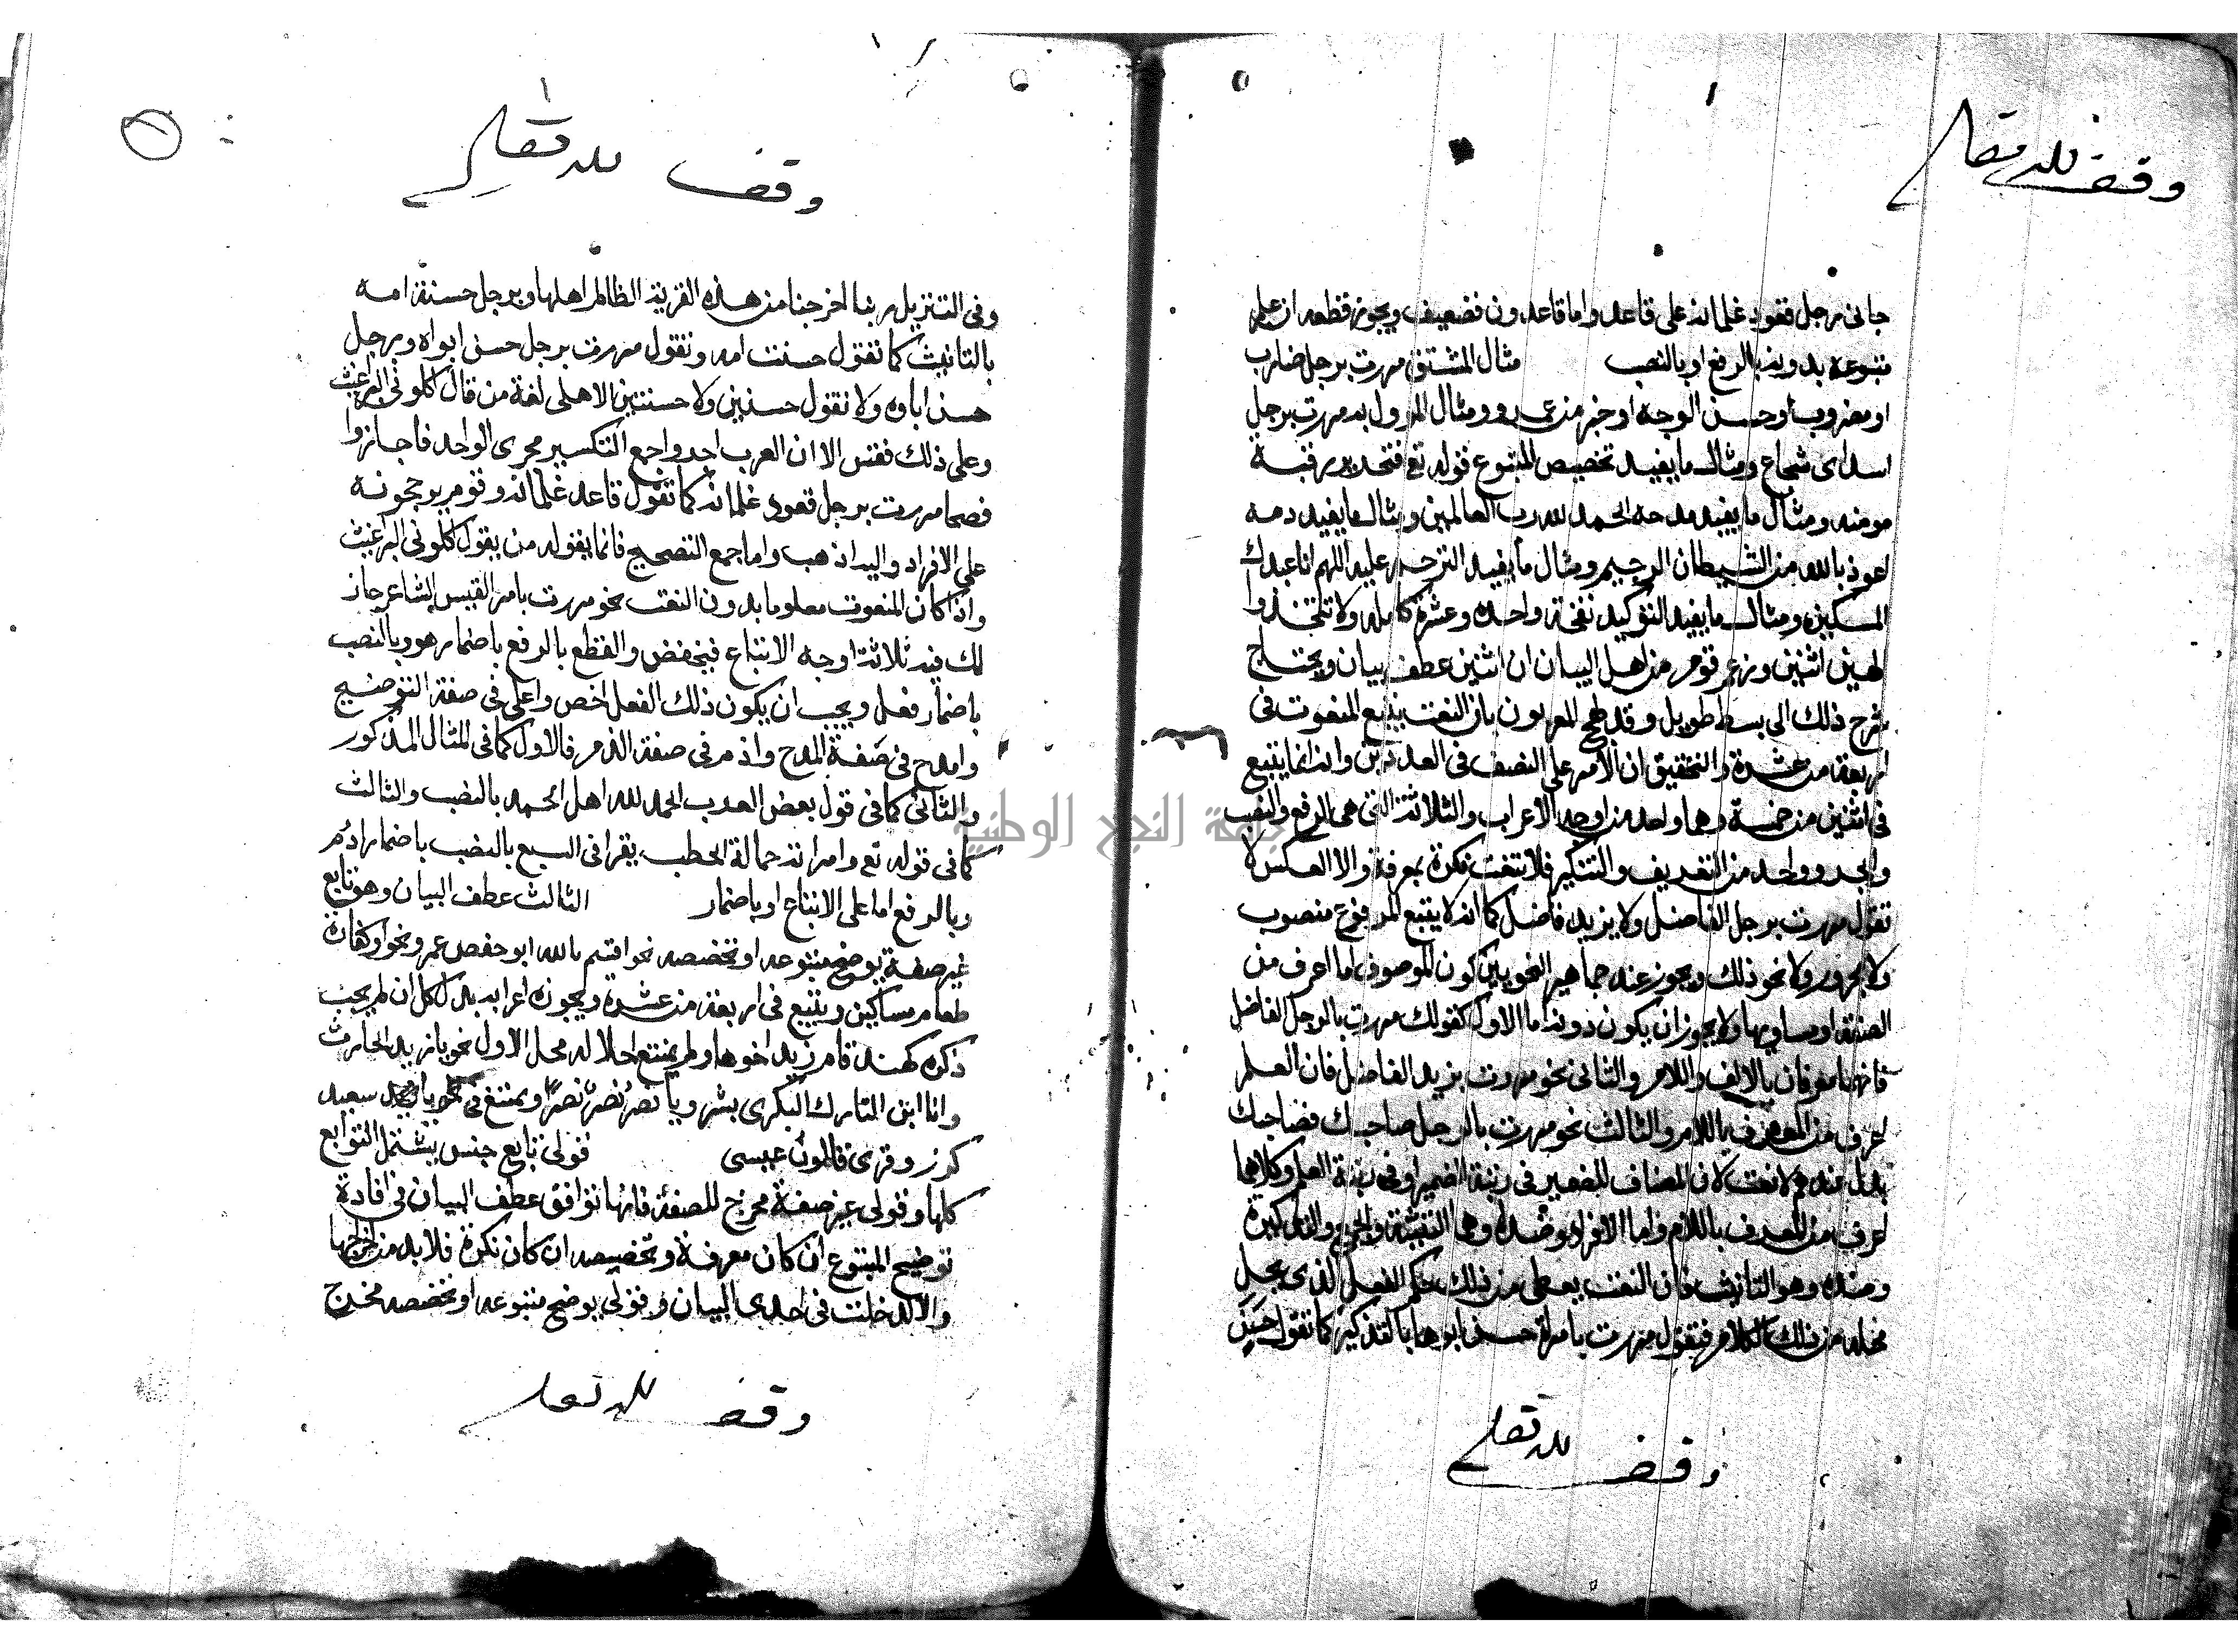 وقف لله تعالى
جانى رجل قعود غلمانه على قاعد واما قاعدون فضعيف ويجوز قطعه ان علم
متبوعه بدونه بالرفع او بالنصب مثال المشتق مررت برجل ضارب
او مضروب او حسن الوجه او خير من عمرو ومثال المؤول به مررت برجل
اسد اى شجاع ومثال ما يفيد تخصيص المتبوع قوله تع فتحرير رقبة
مومنه ومثال ما يفيد مدحه الحمد لله رب العالمين ومثال ما يفيد ذمه
اعوذ بالله من الشيطان الرجيم ومثال ما يفيد الترحم عليه اللهم انا عبدك
المسكين ومثال ما يفيد التوكيد نفخة واحده وعشرة كامله ولا تتخذوا
الهين اثنين وزعم قوم من اهل البيان ان اثنين عطف بيان ويحتاج
شرح ذلك الى بسط طويل وقد لهج المعربون بان النعت يتبع المنعوت فى
اربعة من عشرة والتحقيق ان الامر على النصف فى العددين وانه انما يتبع
فى اثنين من خمسة وهما واحد من اوجه الاعراب والثلاثة التى هى الرفع والنصب
والجر وواحد من التعريف والتنكير فلا تنعت نكرة بمعرفة والا العكس لا
تقول مررت برجل الفاضل ولا بزيد فاضل كما انه لا يتبع المرفوع منصوب
ولا مجرور ولا نحو ذلك ويجوز عند جماهير النحويين كون الموصوف اما اعرف من
الصفة او مساويها ولا يجوز ان يكون دونه اما الاول كقولك مررت بالرجل الفاضل
فانهما معرفان بالالف واللام والثانى نحو مررت بزيد الفاضل فان العلم
اعرف من المعرف باللام والثالث نحو مررت بالرجل صاحبك فصاحبك
بدل عندهم لا نعت لان المضاف للضمير فى رتبة الضمير او فى رتبة العلم وكلاهما
اعرف من المعرف باللام واما الافراد وضده وهما التثنية والجمع والتذكير
وضده وهو التانيث فان النعت يعطى من ذلك حكم الفعل الذى يحل
محله من ذلك الكلام فتقول مررت بامراة حسن ابوها بالتذكير كما تقول حسن
وقف لله تعالى
وقف لله تعالى
وفى التنزيل ربنا اخرجنا من هذه القرية الظالم اهلها وبرجل حسنة امه
بالتانيث كما تقول حسنت امه وتقول مررت برجل حسن ابواه وبرجل
حسن اباوه ولا تقول حسنين ولا حسنتين الا على لغة من قال اكلونى البراغيث
وعلى ذلك فقس الا ان العرب اجروا جمع التكسير مجرى الواحد فاجازوا
فصحا مررت برجل قعود غلمانه كما تقول قاعد غلمانه وقوم يرجحونه
على الافراد واليه اذهب واما جمع التصحيح فانما يقوله من يقول اكلونى البراغيث
واذا كان المنعوت معلوما بدون النعت نحو مررت بامر القيس الشاعر جاز
لك فيه ثلاثة اوجه الاتباع فيخفض والقطع بالرفع باضمار هو وبالنصب
باضمار فعل ويجب ان يكون ذلك الفعل اخص واعلى فى صفة التوضيح
وامدح فى صفة المدح واذم فى صفة الذم فالاول كما فى المثال المذكور
والثانى كما فى قول بعض العرب الحمد لله اهل الحمد بالنصب والثالث
كما فى قوله تع وامراته حمالة الحطب يقرا فى السبع بالنصب باضمار اذم
وبالرفع اما على الاتباع او باضمار الثالث عطف البيان وهو تابع
غير صفة يوضح متبوعه او يخصصه نحو اقسم بالله ابو حفص عمر ونحو او كفارة
طعام مساكين ويتبع فى اربعة من عشرة ويجوز اعرابه بدل كل ان لم يجب
ذكره كهند قام زيد اخوها ولم يمتنع احلاله محل الاول نحو يا زيد الحارث
وانا ابن التارك البكرى بشر ويا نصر نصر نصرا ويمتنع فى نحو يا سعيد
كرز وقرى قالون عيسى قولى تابع جنس يشتمل التوابع
كلها وقولى غير صفة مخرج للصفة فانها توافق عطف البيان فى افادة
توضيح المتبوع ان كان معرفة وتخصيصه ان كان نكرة فلا بد من اخراجها
والا لدخلت فى احدى البيان وقولى يوضح متبوعه او يخصصه مخرج
وقف لله تعالى
جامعة النجاح الوطنية